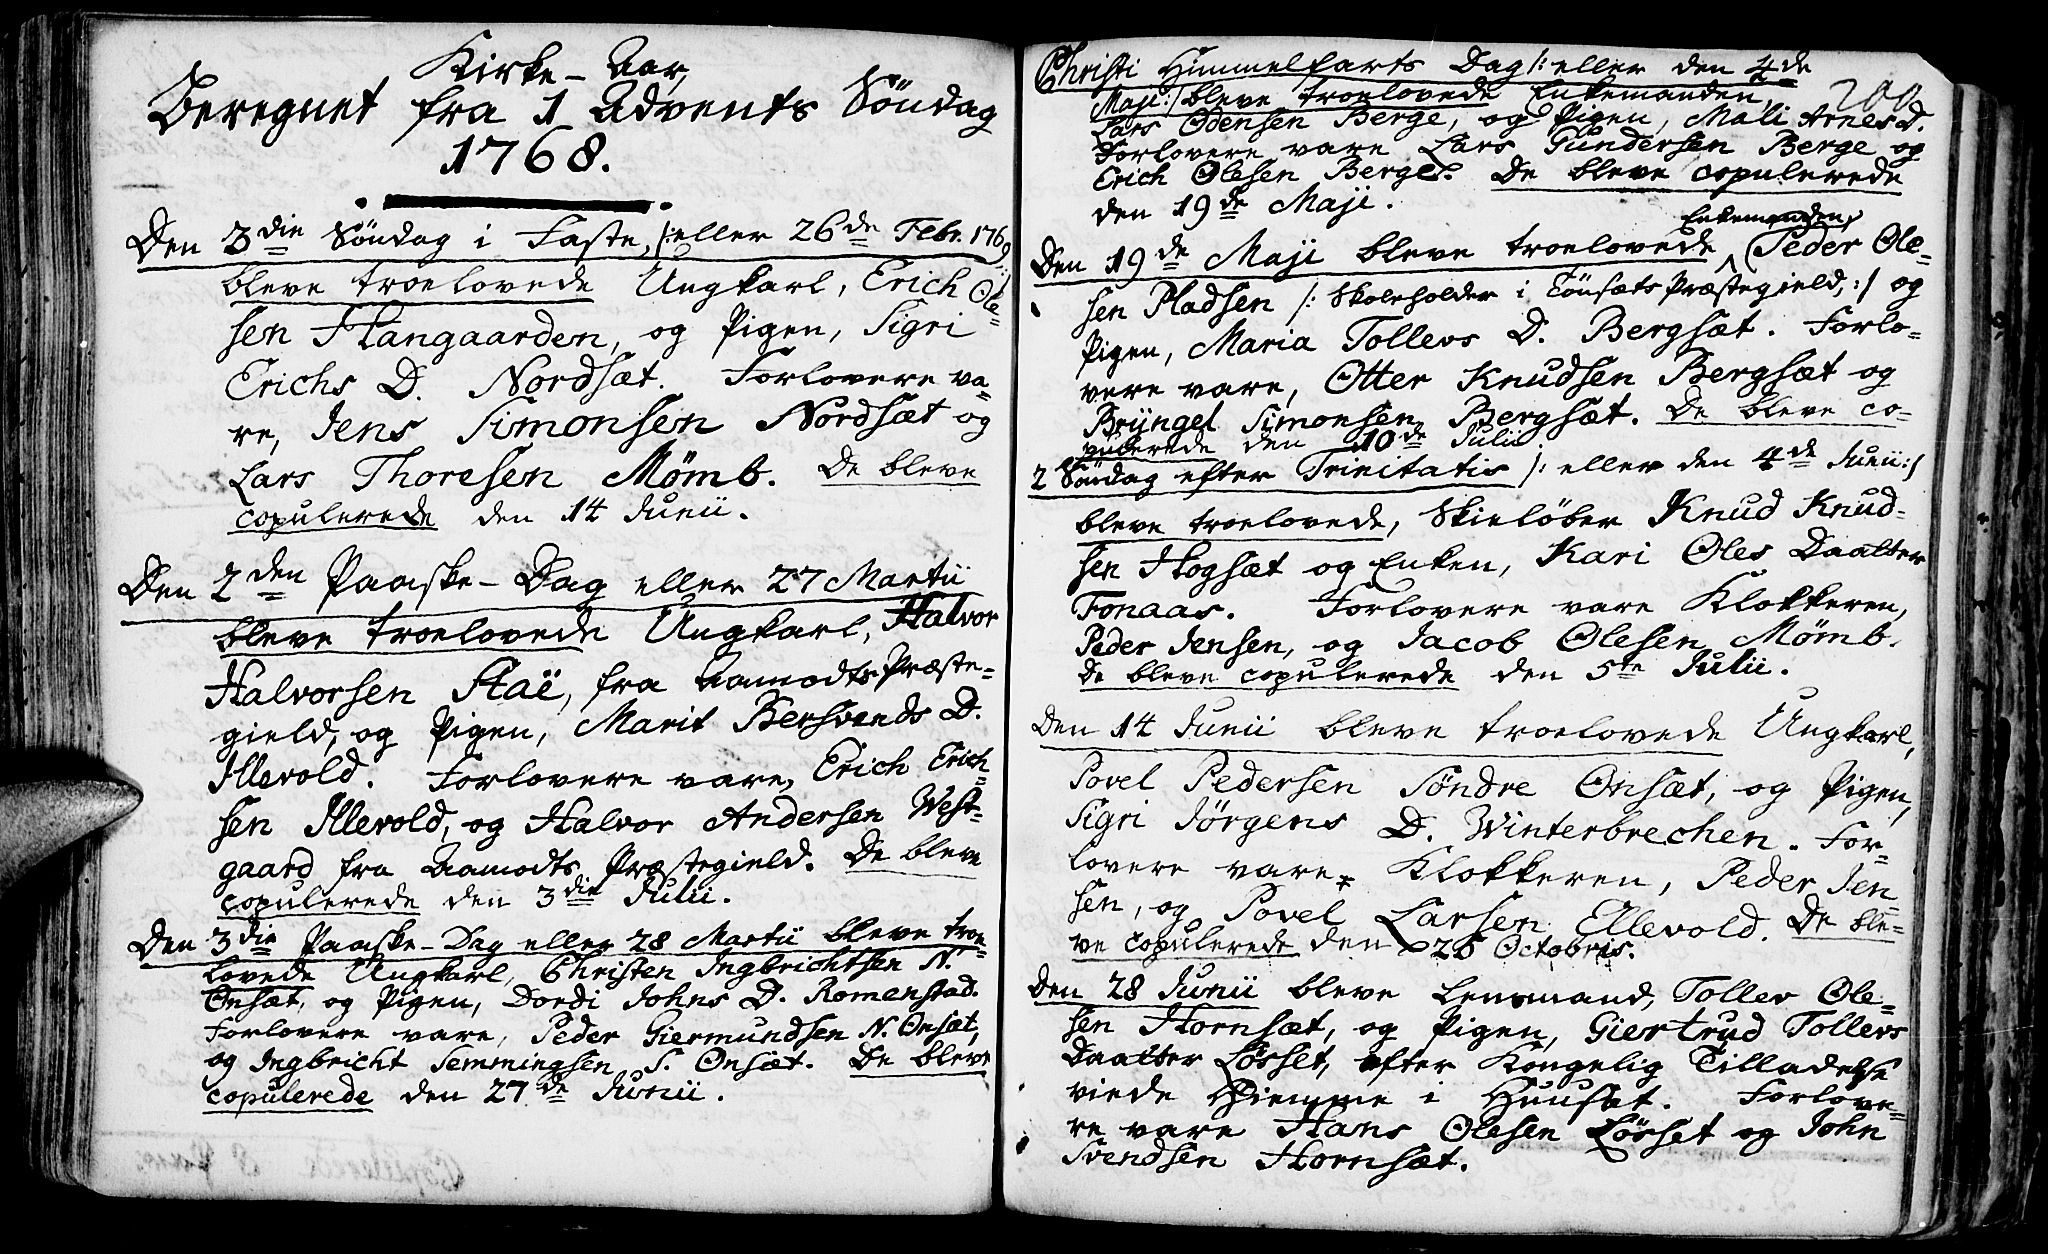 Kirke-Aar,
Beregnet fra 1 Advents Søndag
1768.
Den 3die Søndag i Faste, /: eller 26de Febr. 1769 :/
bleve troelovede Ungkarl, Erich Ole-
sen Hangaarden, og Pigen, Sigri
Erichs D. Nordsæt. Forlovere va-
re, Jens Simonsen Nordsæt og
Lars Thoresen Mømb. De bleve
copulerede den 14 Junii.
Den 2den Paaske-Dag eller 27 Martii
bleve troelovede Ungkarl, Halvor
Halvorsen Staë, fra Aamodts Præste-
gield, og Pigen, Marit Bersvends D.
Illevold. Forlovere vare, Erich Erich-
sen Illevold, og Halvor Andersen West-
gaard fra Aamodts Præstegield. De bleve
copulerede den 3die Julii.
Den 3die Paaske-Dag eller 28 Martii bleve troe-
lovede Ungkarl, Christen Ingbrichtsen N.
Onsæt, og Pigen, Dordi Johns D. Romenstad.
Forlovere vare, Peder Giermundsen N. Onsæt,
og Ingbricht Semmingsen S. Onsæt. De bleve
copulerede den 27de Junii.
200
Christi Himmelfarts Dag /: eller den 4de
Maji :/ bleve troelovede Enkemanden,
Lars Odensen Berge, og Pigen, Mali Arnes D.
Forlovere vare Lars Gundersen Berge og
Erich Olesen Berge. De bleve copulerede
den 19de Maji.
Enkemanden,
Den 19de Maji bleve troelovede Peder Ole-
sen Pladsen /: Skoleholder i Tönsæts Præstegield, :/ og
Pigen, Maria Tollevs D. Bergsæt. Forlo-
vere vare, Otter Knudsen Bergsæt og
Bryngel Simonsen Bergsæt. De bleve co-
pulerede den 10de Julii
2 Søndag efter Trinitatis /: eller den 4de Junii :/
bleve troelovede, Skieløber Knud Knud-
sen Hogsæt og Enken, Kari Oles Daatter
Fonaas. Forlovere vare Klokkeren,
Peder Jensen, og Jacob Olesen Mømb.
De bleve copulerede den 5te Julii.
Den 14 Junii bleve troelovede Ungkarl,
Povel Pedersen Søndre Onsæt, og Pigen,
Sigri Jörgens D. Winterbrechen. For-
lovere vare, Klokkeren, Peder Jen-
sen, og Povel Larsen Ellevold. De ble-
ve copulerede den 25 Octobris.
Den 28 Junii bleve Lensmand, Tollev Ole-
sen Hornsæt, og Pigen, Giertrud Tollevs
Daatter Løsset, efter Kongelig Tilladelse
viede Hiemme i Huuset. Forlove-
re vare Hans Olesen Løsset og John
Svendsen Hornsæt.